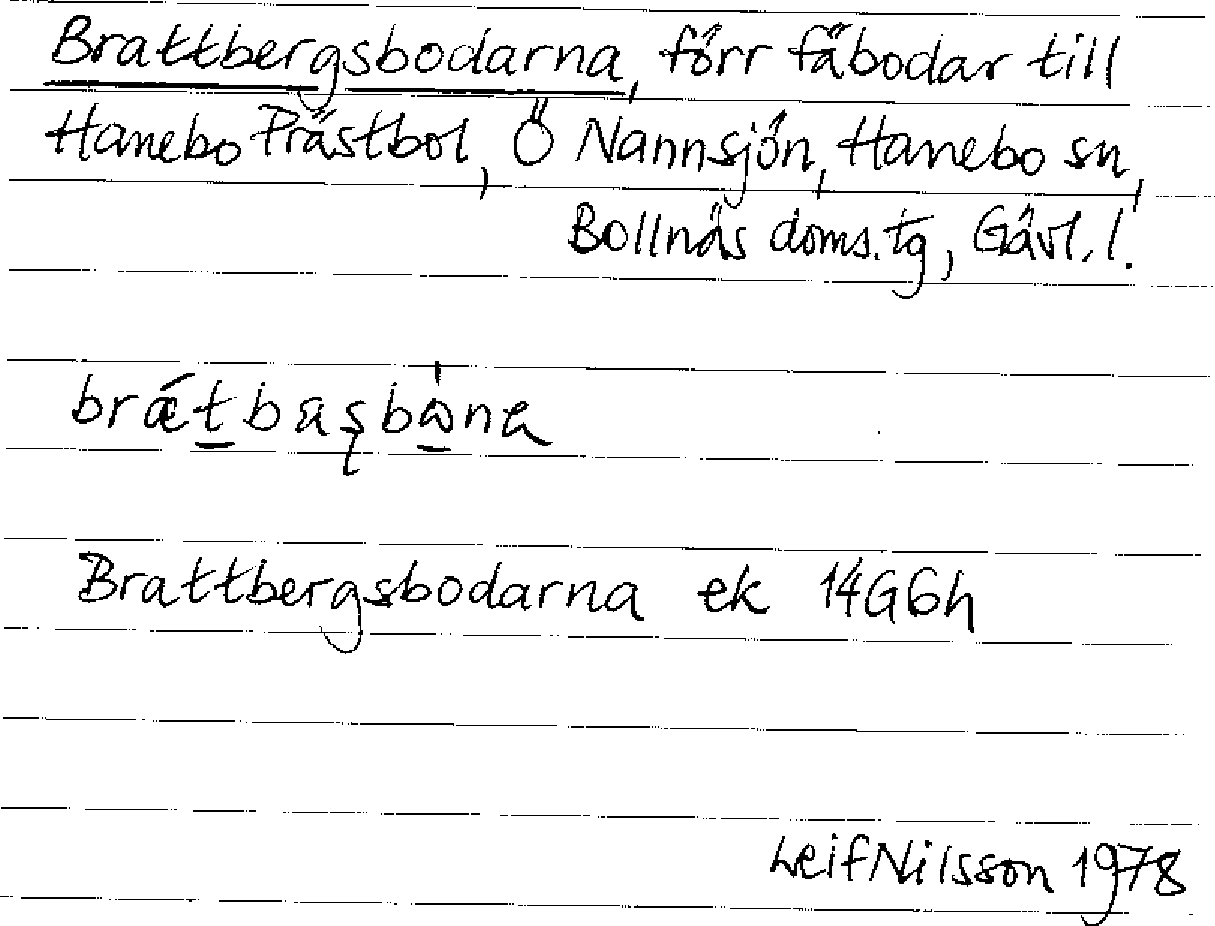 Brattbergsbodarna, förr fäbodar till
Hanebo Prästbol, Ö Nannsjön, Hanebo sn,
Bollnäs doms.tg, Gävl. l.
Brattbergsbodarna ek 14G6h
Leif Nilsson 1978